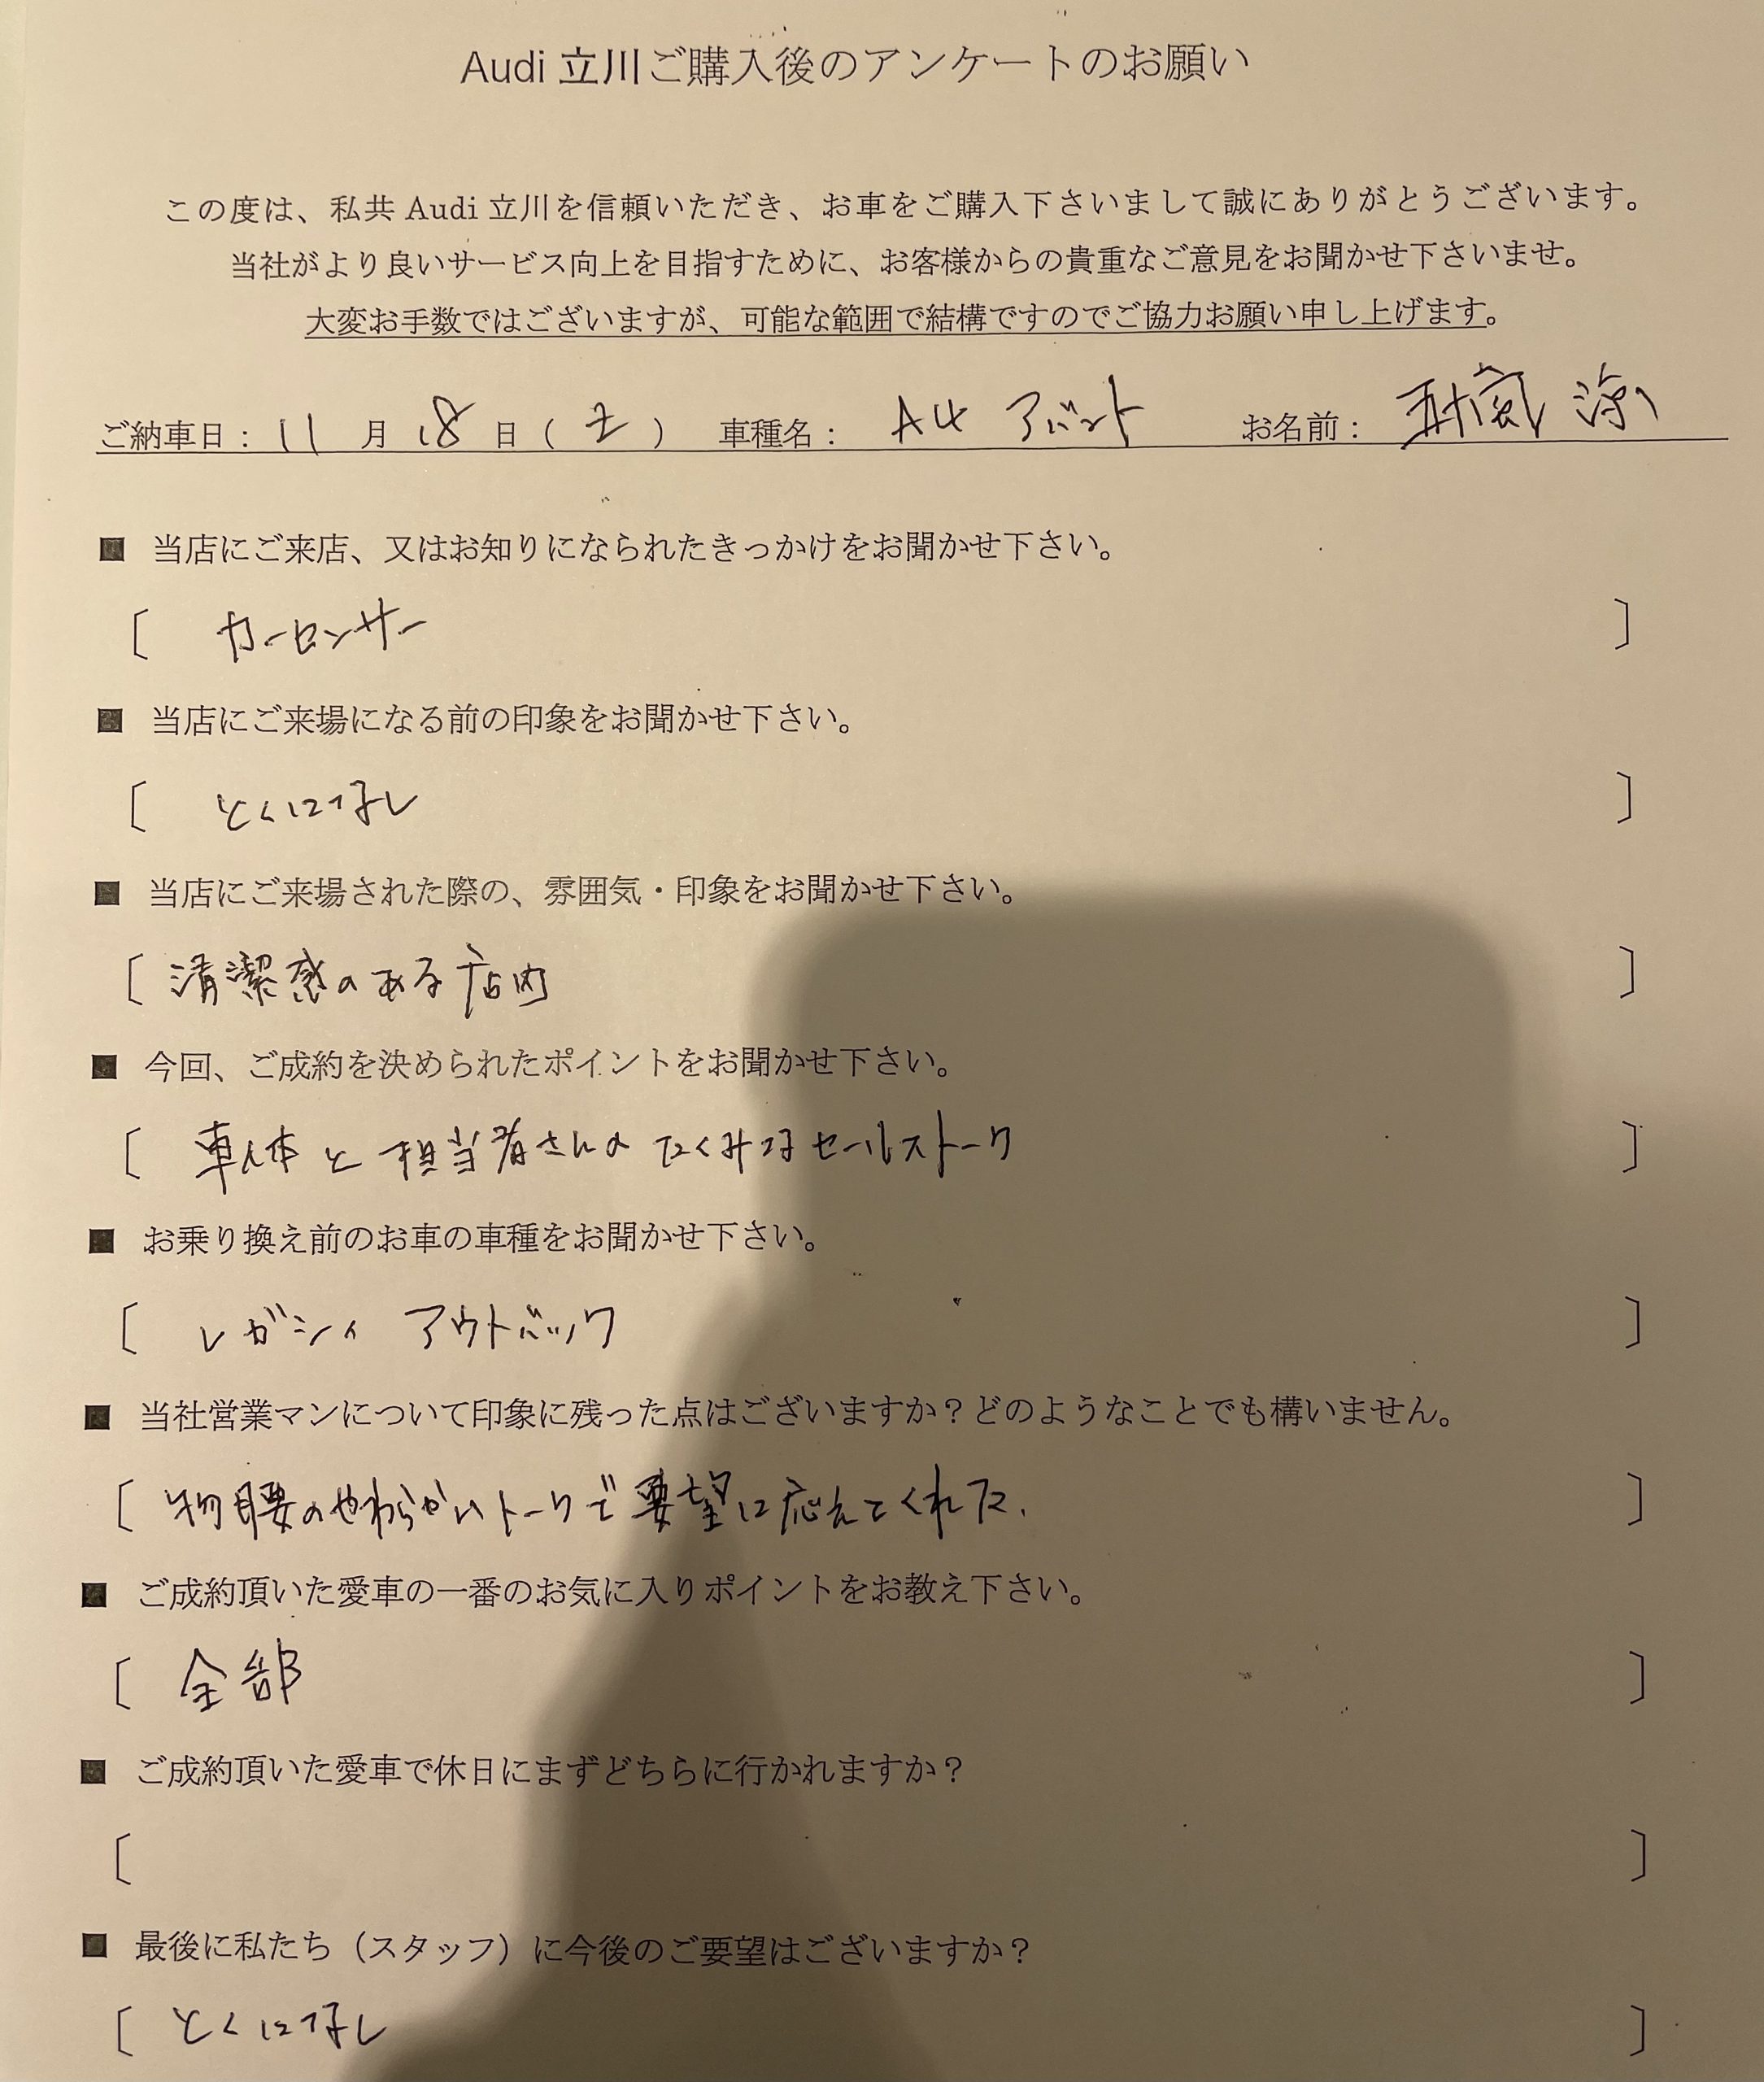 Audi 立川ご購入後のアンケートのお願い
この度は、私共 Audi 立川を信頼いただき、お車をご購入下さいまして誠にありがとうございます。
当社がより良いサービス向上を目指すために、お客様からの貴重なご意見をお聞かせ下さいませ。
大変お手数ではございますが、可能な範囲で結構ですのでご協力お願い申し上げます。
ご納車日： 11 月 18 日（ 土 ） 車種名： A4 アバント お名前： 五十嵐
■ 当店にご来店、又はお知りになられたきっかけをお聞かせ下さい。
〔 カーセンサー 〕
■ 当店にご来場になる前の印象をお聞かせ下さい。
〔 とくになし 〕
■ 当店にご来場された際の、雰囲気・印象をお聞かせ下さい。
〔 清潔感のある店内 〕
■ 今回、ご成約を決められたポイントをお聞かせ下さい。
〔 車体と担当者さんのたくみなセールストーク 〕
■ お乗り換え前のお車の車種をお聞かせ下さい。
〔 レガシィ アウトバック 〕
■ 当社営業マンについて印象に残った点はございますか？どのようなことでも構いません。
〔 物腰のやわらかいトークで要望に応えてくれた. 〕
■ ご成約頂いた愛車の一番のお気に入りポイントをお教え下さい。
〔 全部 〕
■ ご成約頂いた愛車で休日にまずどちらに行かれますか？
〔 〕
■ 最後に私たち（スタッフ）に今後のご要望はございますか？
〔 とくになし 〕